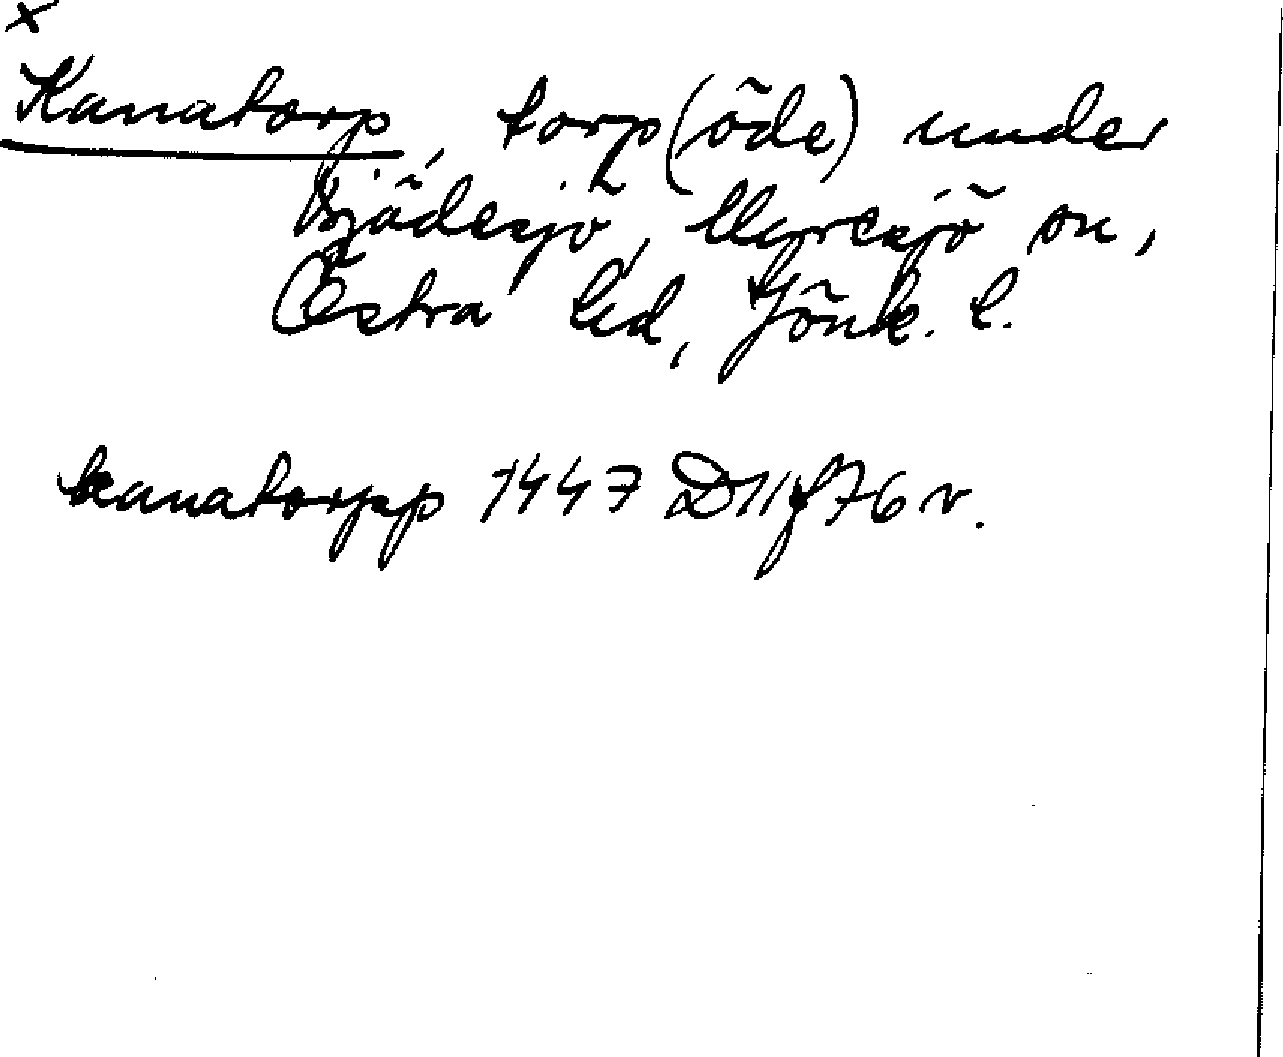 x
Kanatorp, torp (öde) under
Bjädesjö, Maresjö sn,
Östra hd, Jönk. l.
kanatorpp 1447 D11 f 76 v.